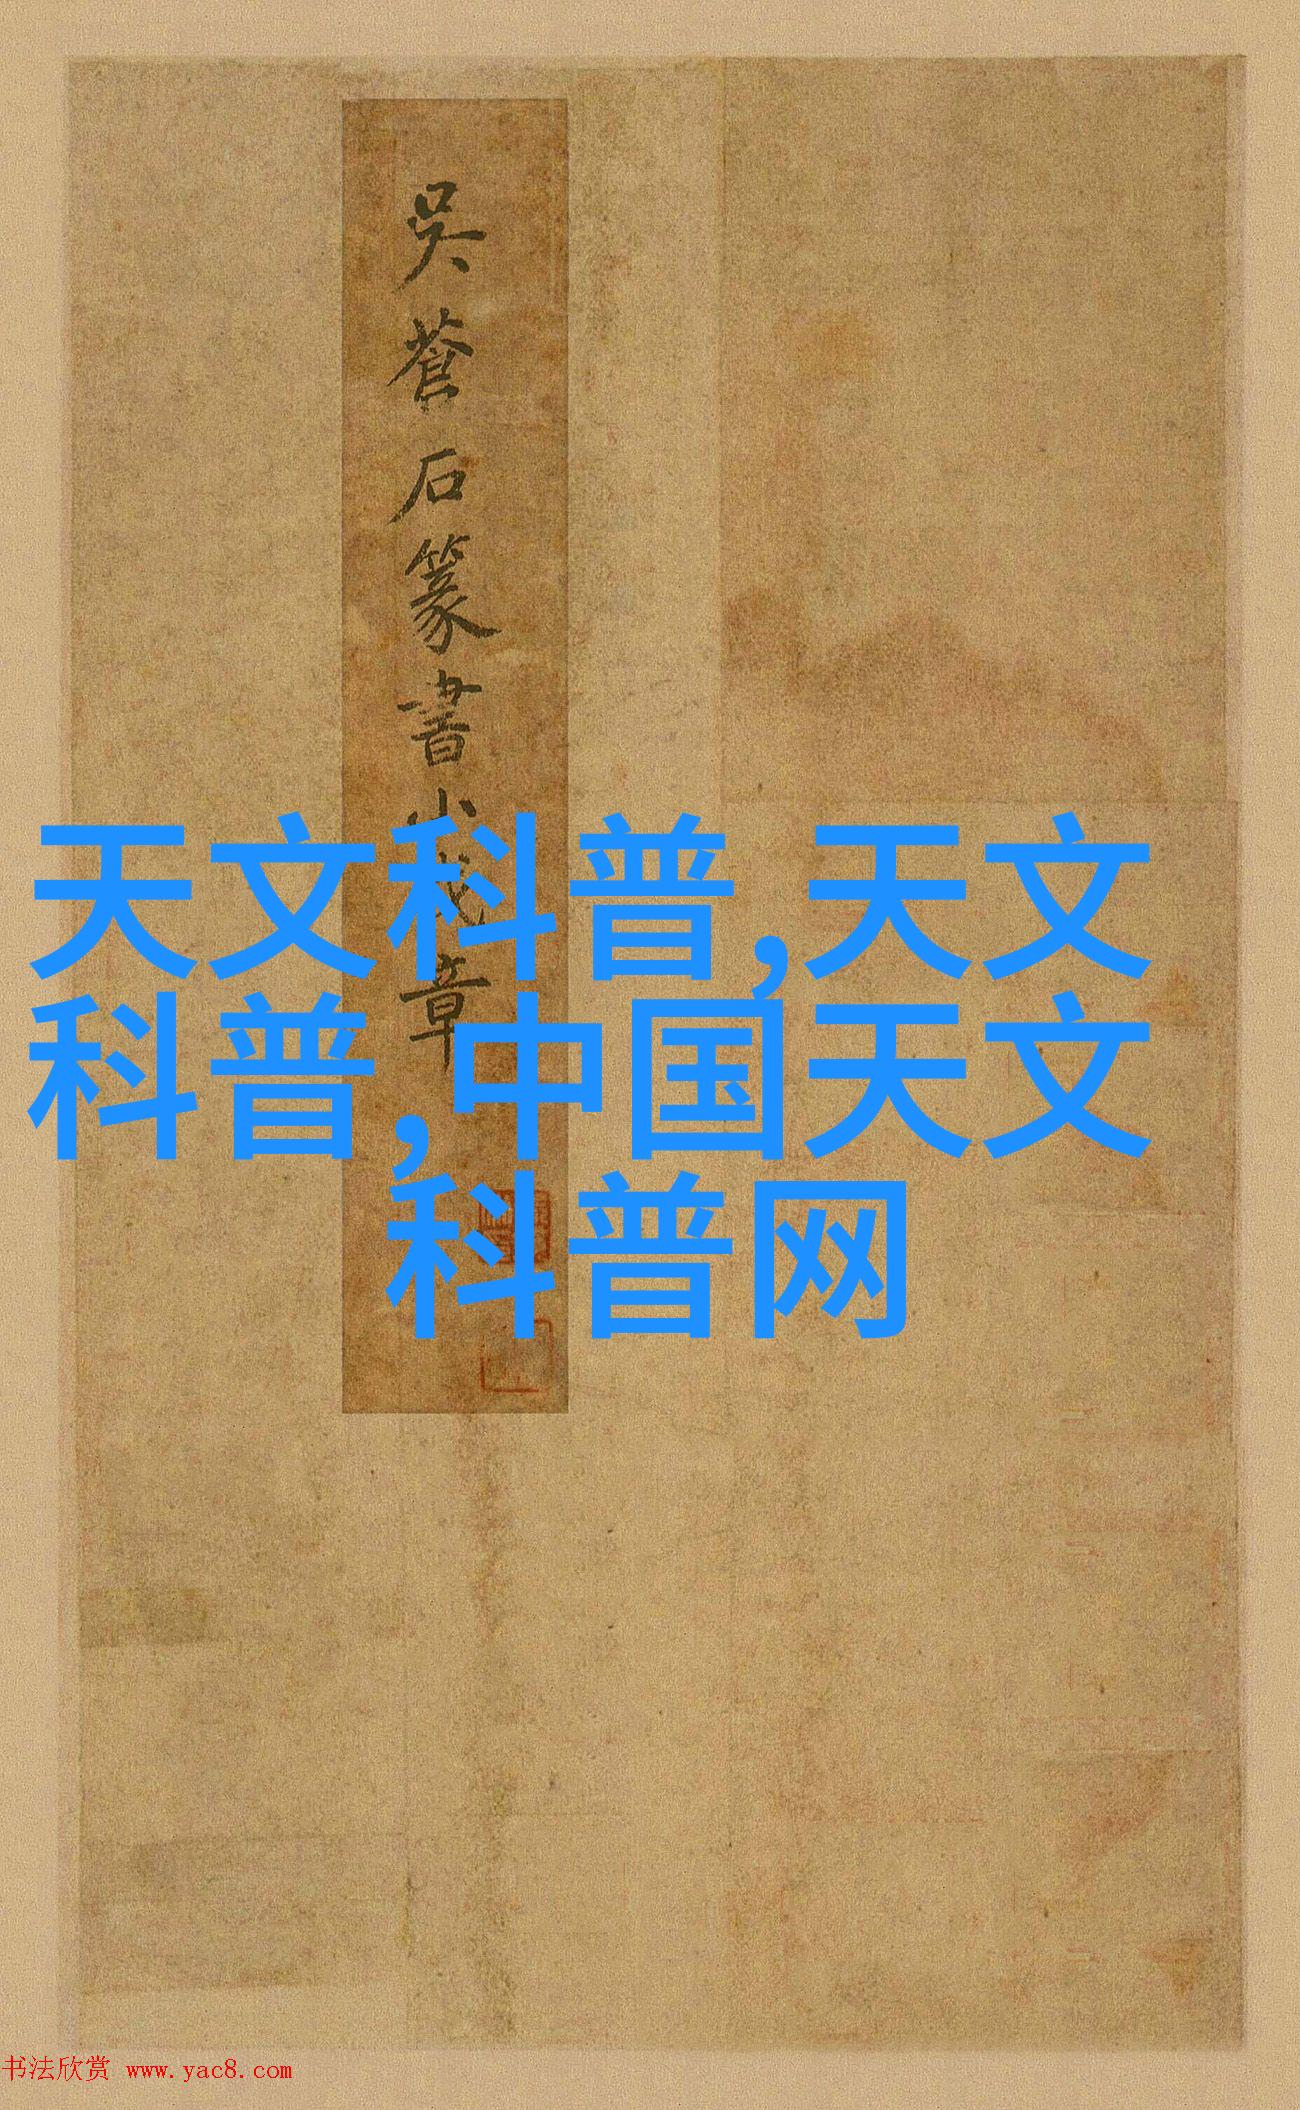 吳蒼石篆書小戎章
天文科普,天文
科普,中国天文
科普网
书法欣赏 www.yac8.com